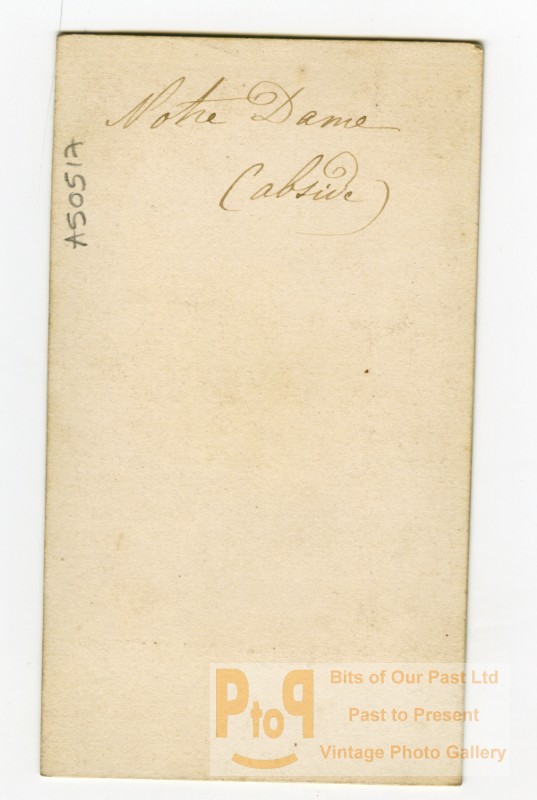 Notre Dame
(abside)
A5051A
PtoP
Bits of Our Past Ltd
Past to Present
Vintage Photo Gallery